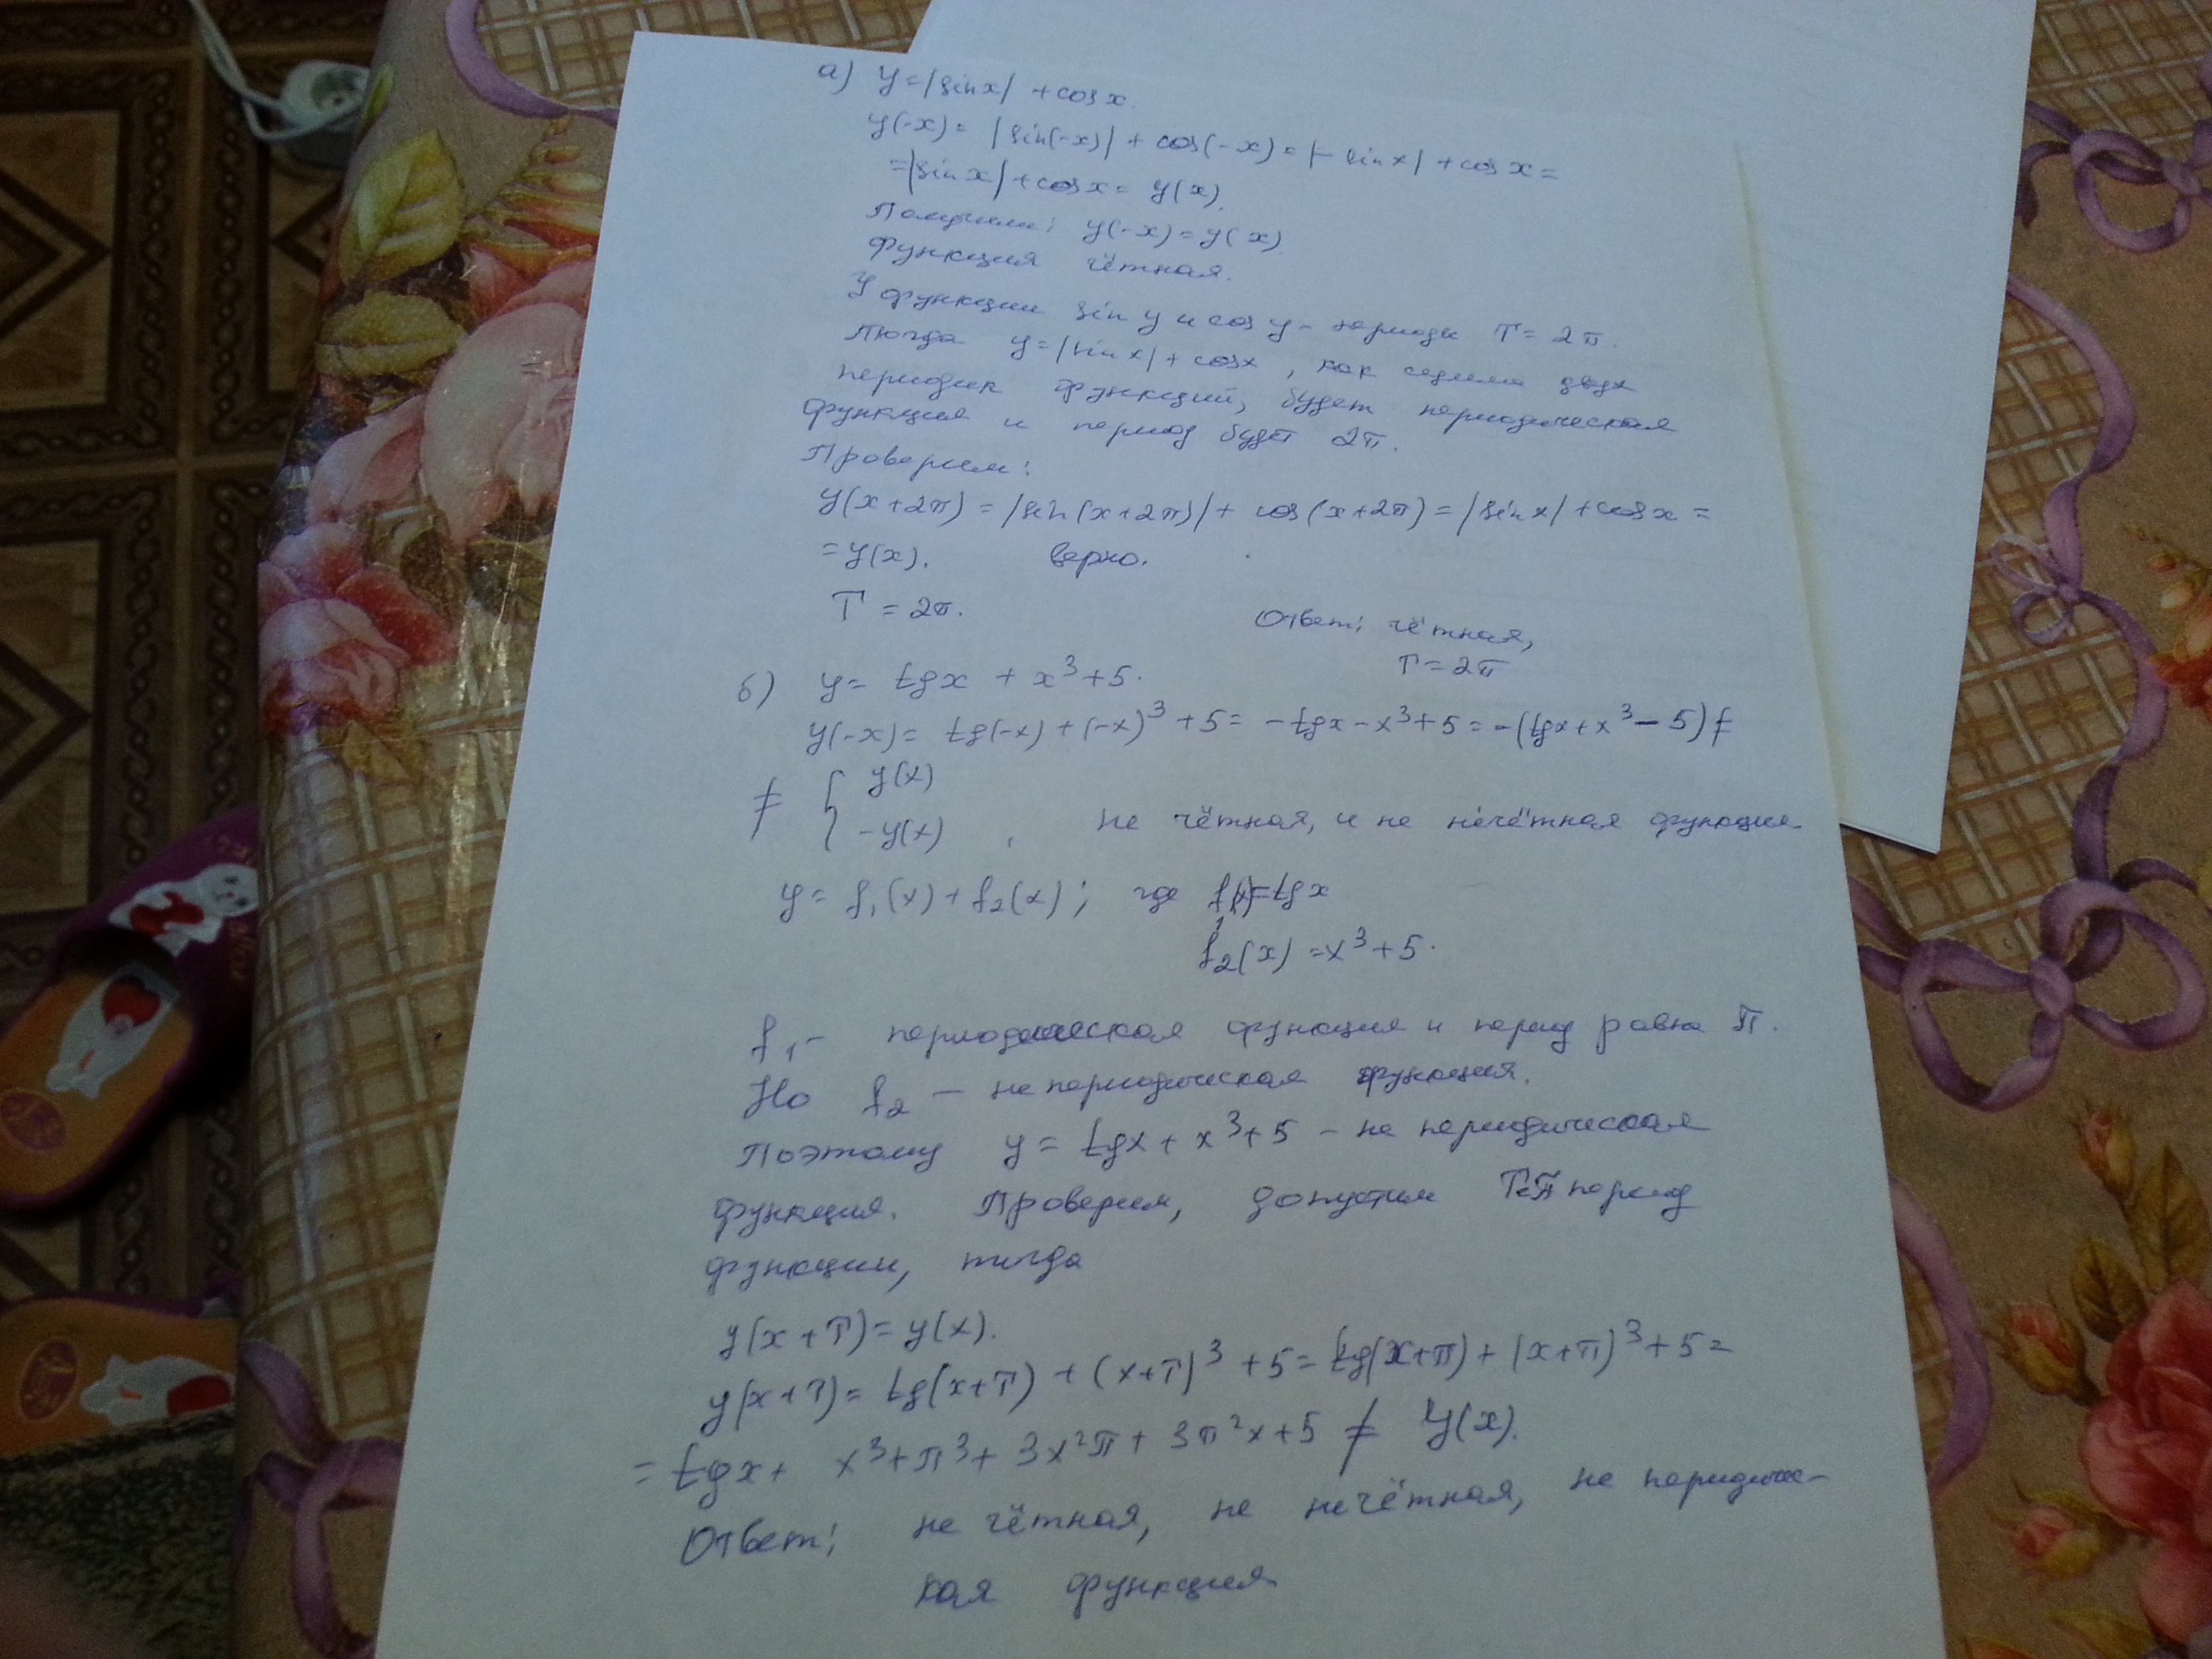 а) y=|sin x| + cos x.
y(-x) = |sin(-x)| + cos(-x) = |- sin x| + cos x =
=|sin x| + cos x = y(x).
Получили: y(-x) = y(x).
Функция чётная.
У функции sin y и cos y - периоды T = 2π.
Тогда y=|sin x| + cos x, как сумма двух
период функций, будет периодическая
функция и период будет 2π.
Проверим:
y(x+2π) = |sin(x+2π)| + cos(x+2π) = |sin x| + cos x =
= y(x). верно.
T = 2π.
Ответ: чётная,
T = 2π
б) y = tg x + x³+5.
y(-x) = tg(-x) + (-x)³ + 5 = -tgx - x³ + 5 = -(tgx + x³ - 5) ≠
≠ { y(x)
-y(x) , не чётная, и не нечётная функция.
y = f₁(x) + f₂(x); где f₁(x)=tg x
f₂(x) = x³+5.
f₁ - периодическая функция и период равна π.
Но f₂ - не периодическая функция.
Поэтому y = tgx + x³+5 - не периодическая
функция. Проверим, допустим T=π период
функции, тогда
y(x+T) = y(x).
y(x+T) = tg(x+T) + (x+T)³ + 5 = tg(x+π) + (x+π)³ + 5 =
= tgx + x³+π³+ 3x²π + 3π²x + 5 ≠ y(x).
Ответ: не чётная, не нечётная, не периодичес-
кая функция